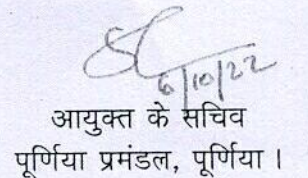 6/10/22
आयुक्त के सचिव
पूर्णिया प्रमंडल, पूर्णिया ।